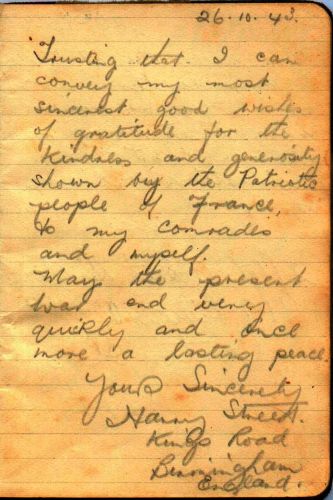 26.10.43.
Trusting that I can
convey my most
sincerest good wishes
of gratitude for the
kindness and generosity
shown by the Patriotic
people of France,
to my comrades
and myself.
May the present
war end very
quickly and once
more a lasting peace.
Yours Sincerely
Harry Street.
Kings Road
Birmingham
England.